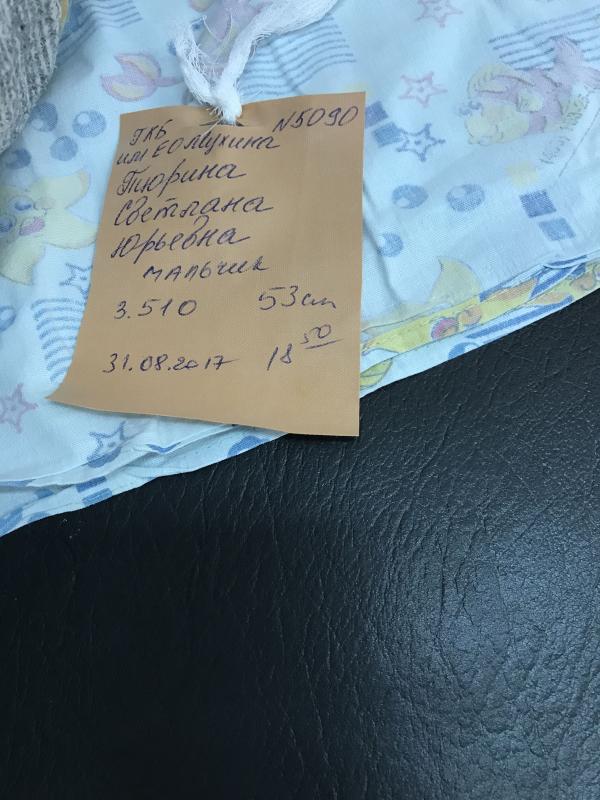 ГКБ N5090
им ЕО Мухина
Тюрина
Светлана
Юрьевна
мальчик
3.510 53 см
31.08.2017 18 50